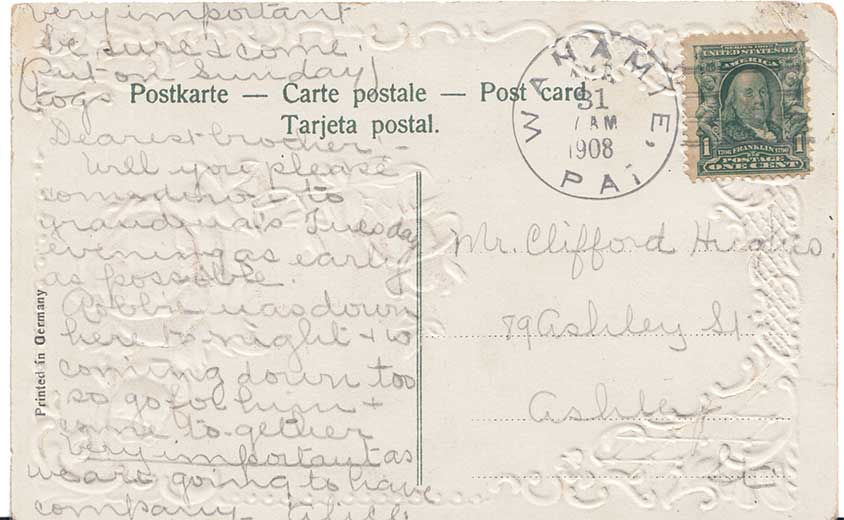 very important
be sure & come.
(Put on Sunday)
togs
Postkarte — Carte postale — Post card
Tarjeta postal.
Dearest brother:—
Will you please
come down to
grandma's Tuesday
evening as early
as possible.
Robbie was down
here to-night +
coming down too
so go for him +
come to-gether
very important as
we are going to have
company
Printed in Germany
WANAMIE, PA.
31
7 AM
1908
SERIES 1902
UNITED STATES OF
AMERICA
1 1706 FRANKLIN 1790 1
POSTAGE
ONE CENT
Mr. Clifford Hughes.
89 Ashley St
Ashley